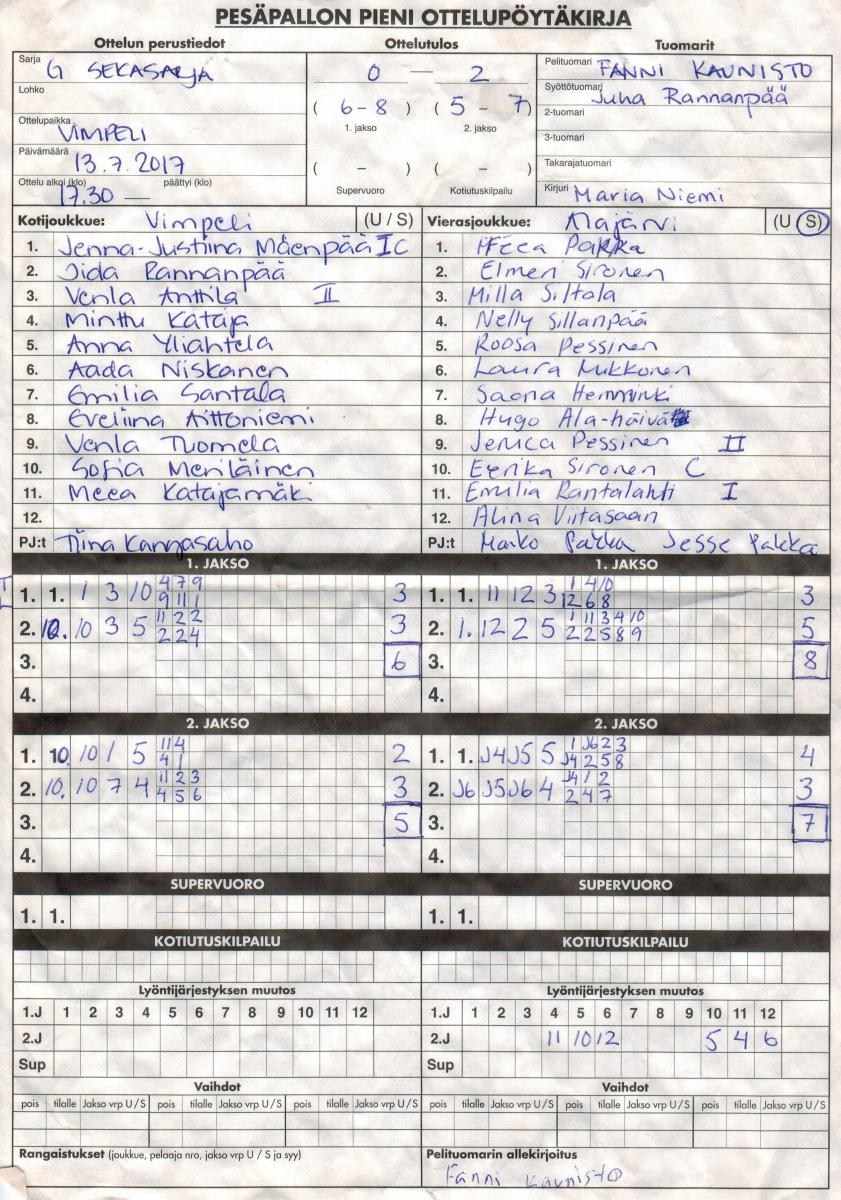 PESÄPALLON PIENI OTTELUPÖYTÄKIRJA
Ottelun perustiedot
Sarja G SEKASARJA
Lohko
Ottelupaikka VIMPELI
Päivämäärä 13.7.2017
Ottelu alkoi (klo) 17.30 — päättyi (klo)
Ottelutulos
0 — 2
( 6 - 8 ) ( 5 - 7 )
1. jakso 2. jakso
( - ) ( - )
Supervuoro Kotiutuskilpailu
Tuomarit
Pelituomari FANNI KAUNISTO
Syöttötuomari Juha Rannanpää
2-tuomari
3-tuomari
Takarajatuomari
Kirjuri Maria Niemi
Kotijoukkue: Vimpeli (U / S)
1. Jenna-Justiina Mäenpää I C
2. Iida Rannanpää
3. Venla Anttila II
4. Minttu Kataja
5. Anna Yliahtela
6. Aada Niskanen
7. Emilia Santala
8. Eveliina Aittoniemi
9. Venla Tuomela
10. Sofia Meriläinen
11. Meea Katajamäki
12.
PJ:t Tiina Kangasaho
Vierasjoukkue: Alajärvi (U / S)
1. Peca Pakka
2. Elmeri Sironen
3. Milla Siltala
4. Nelly Sillanpää
5. Roosa Pessinen
6. Laura Mikkonen
7. Saana Hemminki
8. Hugo Ala-häivä
9. Jenica Pessinen II
10. Eerika Sironen C
11. Emilia Rantalahti I
12. Alina Viitasaari
PJ:t Marko Pakka Jesse Pakka
1. JAKSO
1. 1. 1 3 10 4 7 9 3
9 11 1
2. 10. 10 3 5 11 2 2 3
2 2 4
3. 6
4.
1. JAKSO
1. 1. 11 12 3 1 4 10 3
12 6 8
2. 1. 12 2 5 1 11 3 4 10 5
2 2 5 8 9
3. 8
4.
2. JAKSO
1. 10 10 1 5 11 4 2
4 1
2. 10. 10 7 4 11 2 3 3
4 5 6
3. 5
4.
2. JAKSO
1. 1. J4 J5 5 1 J6 2 3 4
J4 2 5 8
2. J6 J5 J6 4 J4 1 2 3
2 4 7
3. 7
4.
SUPERVUORO
1. 1.
SUPERVUORO
1. 1.
KOTIUTUSKILPAILU
KOTIUTUSKILPAILU
Lyöntijärjestyksen muutos
1.J 1 2 3 4 5 6 7 8 9 10 11 12
2.J
Sup
Lyöntijärjestyksen muutos
1.J 1 2 3 4 5 6 7 8 9 10 11 12
2.J 11 10 12 5 4 6
Sup
Vaihdot
pois tilalle Jakso vrp U/S pois tilalle Jakso vrp U/S pois tilalle Jakso vrp U/S
Vaihdot
pois tilalle Jakso vrp U/S pois tilalle Jakso vrp U/S pois tilalle Jakso vrp U/S
Rangaistukset (joukkue, pelaaja nro, jakso vrp U / S ja syy)
Pelituomarin allekirjoitus
Fanni Kaunisto